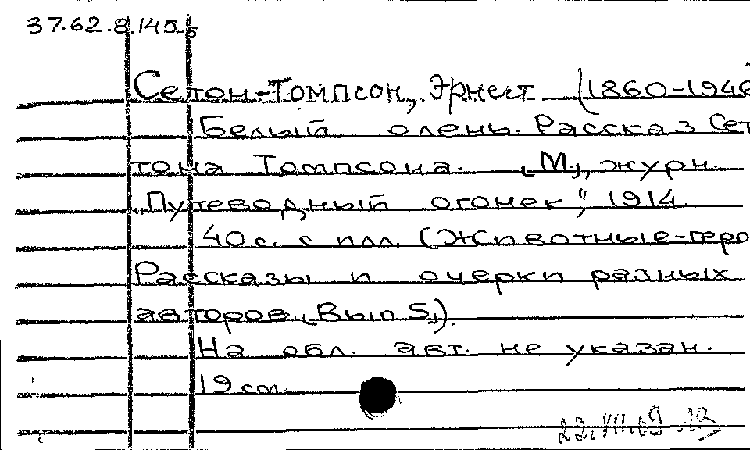 37.62.8.145
Сетон-Томпсон, Эрнест (1860-1946
Белый олень. Рассказ Сет
тона Томпсона. [М.], журн.
"Путеводный огонек", 1914.
40 с. с илл. (Животные-геро
Рассказы и очерки разных
авторов. [Вып 5]).
На обл. авт. не указан.
19 см.
22.VII.69